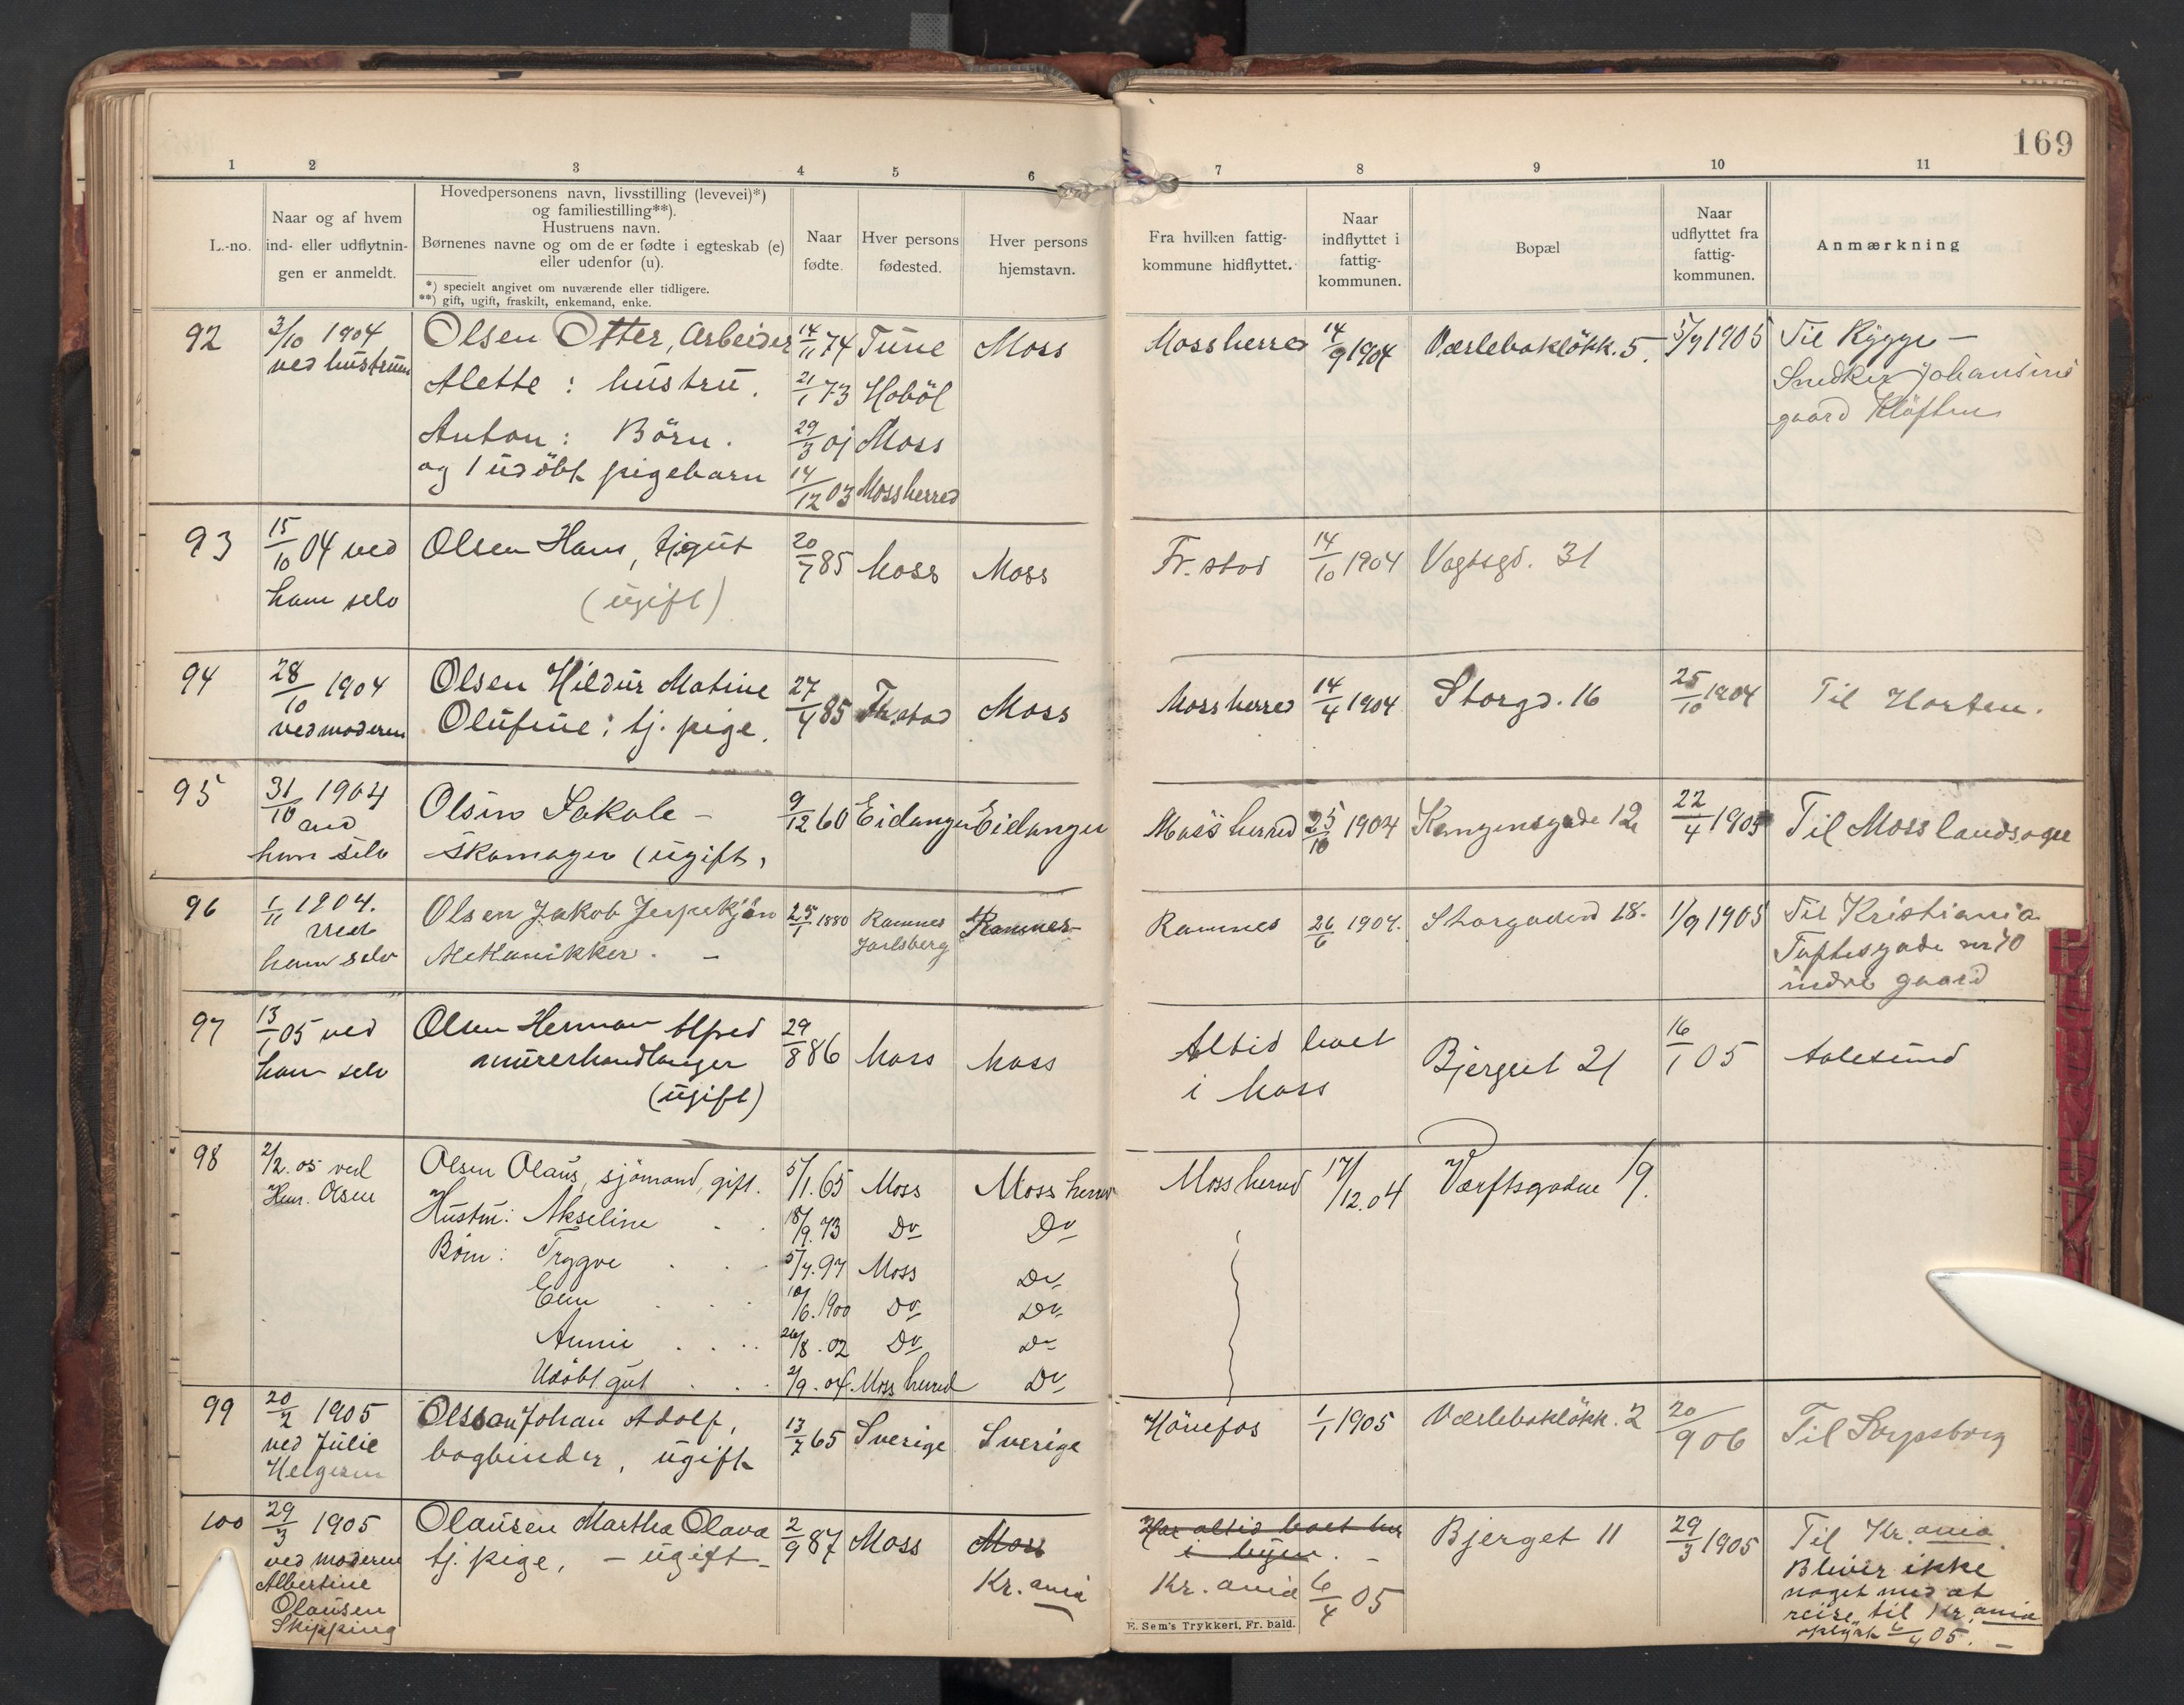 169
1 2 3 4 5 6 7 8 9 10 11
L.-no.
Naar og af hvem
ind- eller udflytnin-
gen er anmeldt.
Hovedpersonens navn, livsstilling (levevei)*)
og familiestilling**).
Hustruens navn.
Børnenes navne og om de er fødte i egteskab (e)
eller udenfor (u).
*) specielt angivet om nuværende eller tidligere.
**) gift, ugift, fraskilt, enkemand, enke.
Naar
fødte.
Hver persons
fødested.
Hver persons
hjemstavn.
Fra hvilken fattig-
kommune hidflyttet.
Naar
indflyttet i
fattig-
kommunen.
Bopæl
Naar
udflyttet fra
fattig-
kommunen.
Anmærkning
92 3/10 1904 Olsen Otter, Arbeider 14/11 74 Tune Moss Mossherred 14/9 1904 Værlebakløkk. 5. 1905 Til Rygge –
ved hustruen Alette : hustru. 21/1 73 Haböl Snedker Johansens
Anton : Börn. 29/3 01 Moss gaard Kløften
og 1 udöbt pigebarn 14/12 03 Mossherred
93 15/10 04 ved Olsen Hans, tjgut 20/7 85 Moss Moss Fr.stad 14/10 1904 Vogtsgd. 31
ham selv (ugift)
94 28/10 1904 Olsen Hildur Matine 27/4 85 Fr.stad Moss Mossherred 14/4 1904 Storgd. 16 25/10 1904 Til Horten.
ved moderen Olufine : tj. pige.
95 31/10 1904 Olsen 9/12 60 Eidanger Eidanger Moss herred 25/10 1904 Kongensgade 12 22/4 1905 Til Moss landsogn
ham selv Skomager (ugift)
96 1/11 1904. Olsen Jakob 25/1 1880 Ramnes Ramnes Ramnes 26/6 1904. Storgaden 18. 1/9 1905 Til Kristiania
ved Jarlsberg Toftesgade nr 40
ham selv Mekanikker. – indre gaard
97 13/1 05 ved Olsen Herman Alfred 29/8 86 Moss Moss Altid boet Bjerget 21 16/1 05 Aalesund
ham selv murerhandlanger i Moss
(ugift)
98 2/2. 05 ved Olsen Olaus, sjömand, gift. 5/1. 65 Moss Moss herred Moss herred 17/12. 04 Værftsgaden 19.
Olsen Hustru: Akseline . . 18/9. 73 Do Do
Börn : Trygve . . 5/7. 97 Moss Do
. . . 10/6. 1900 Do Do
Annie . . . . 26/8. 02 Do Do
Udöbt gut . . 2/9. 04. Moss herred Do
99 20/2 1905 Olsson Johan Adolf, 13/7 65 Sverige Sverige Hönefos 1/1 1905 Værlebakløkk. 2 20/9 06 Til Sarpsborg
ved Julie bogbinder, ugift
Helgesen
100 29/3 1905 Olausen Martha Olava 2/9 87 Moss Moss Har altid boet her Bjerget 11 29/3 1905 Til Kr.ania.
ved moderen tj. pige, – ugift – i byen. – Bliver ikke
Albertine Kr.ania Kr.ania 6/4 05 noget med at
Olausen reise til Kr.ania
Skipping oplyst 6/4 05. –
E. Sem's Trykkeri, Fr. hald.